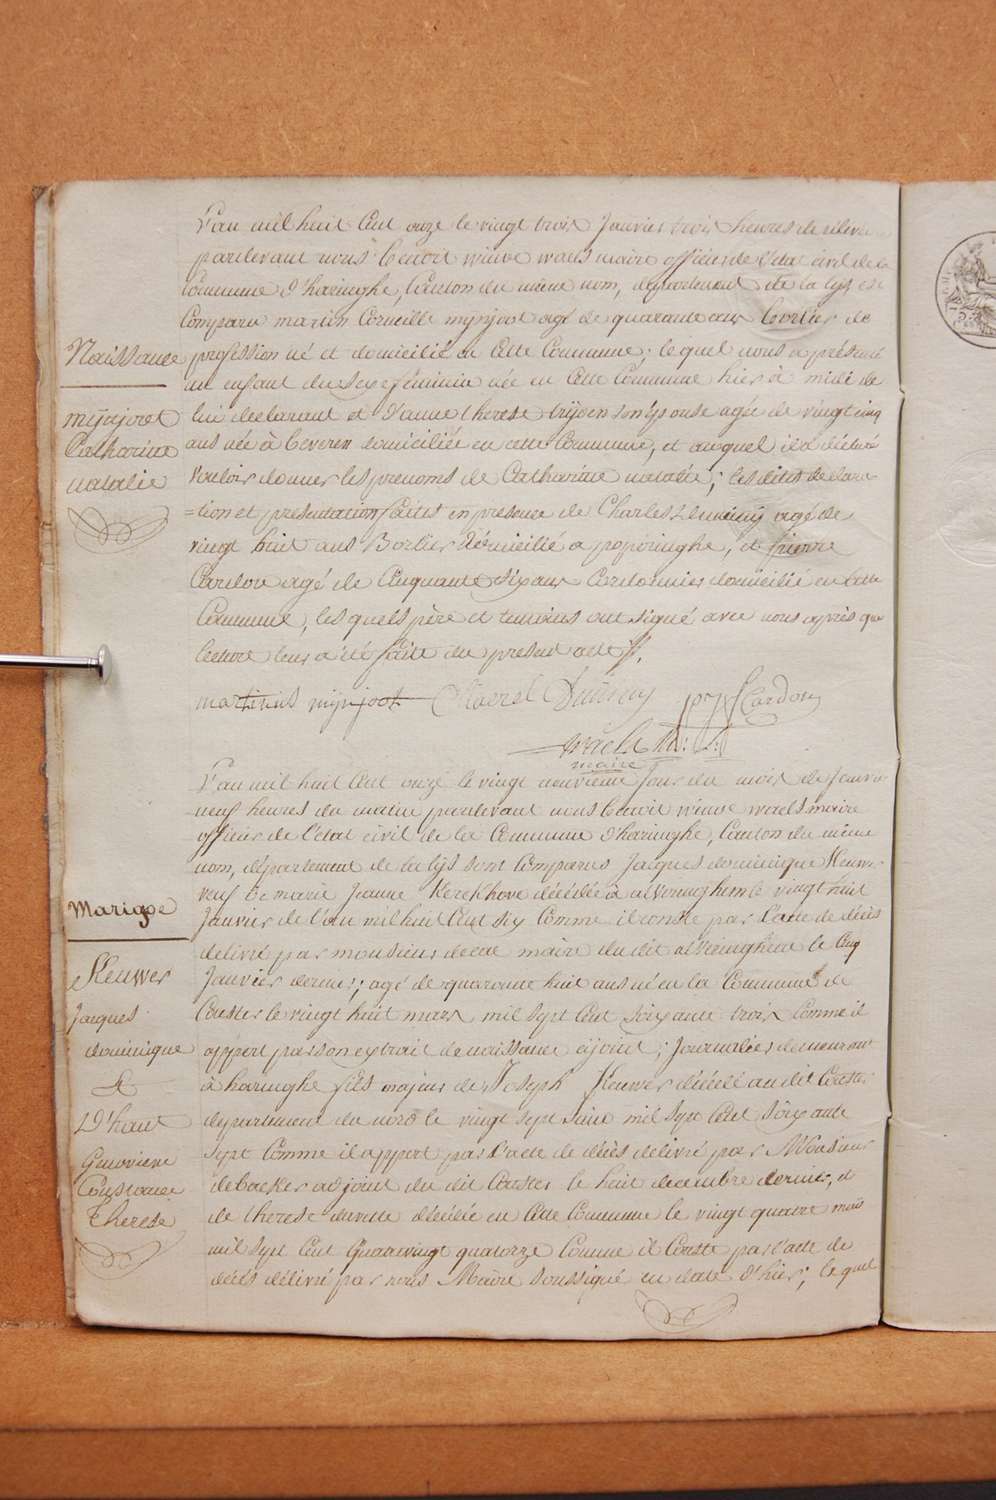 L'an mil huit Cent onze le vingt trois Janvier trois heures de rélevée
pardevant nous Benoit winve waels maire officier de l'état civil de la
Commune d'haringhe, Canton du même nom, département de la lys est
Comparu martin Corneille mijnjoot agé de quarante ans Bortier de
Naissance
profession né et domicilié en Cette Commune; lequel nous a présenté
un enfant du Sexe féminin née en Cette Commune hier à midi de
mijnjoot
lui declarant et d'anne therese trijoen son épouse agée de vingt cinq
Catharine
ans née à beveren domiciliée en cette Commune, et auquel il a déclaré
natalie
vouloir donner les prenoms de Catharine natalie; les dites declara
=tion et presentation faites en presence de Charles agé de
vingt huit ans Bortier domicilié a poperinghe, et pierre
Cardon agé de Cinquante Six ans Cordonnier domicilié en Cette
Commune, les quels père et temoins ont signé avec nous après que
lecture leur a été faite du present acte.
martinus mijnjoot Pr J Cardon
maire
L'an mil huit Cent onze le vingt neuvieme Jour du mois de Janvier
neuf heures du matin pardevant nous Benoit winve waels maire
officier de l'état civil de la Commune d'haringhe, Canton du même
nom, département de la lys sont Comparus Jacques dominique Fleuwer
veuf de marie Jeanne Kerckhove décédée à alveringhem le vingt huit
Mariage
Janvier de l'an mil huit Cent dix Comme il conste par l'acte de décès
delivré par monsieur maire du dit alveringhem le Cinq
Fleuwer
Janvier dernier; agé de quarante huit ans né en la Commune de
Jacques
Caester le vingt huit mars mil sept Cent Soixante trois Comme il
dominique
appert par son extrait de naissance ajoint; Journalier demeurant
&
à haringhe fils majeur de Joseph Fleuwer décédé au dit Caester
D'haut
département du nord le vingt sept Juin mil sept Cent Soixante
Genovieve
sept Comme il appert par l'acte de décès délivré par Monsieur
Constance
debacker adjoint du dit Caester le huit decembre dernier, et
Therese
de therese décédée en Cette Commune le vingt quatre mai
mil sept Cent Quatrevingt quatorze Comme il Conste par l'acte de
décès délivré par nous Maire soussigné en date d'hier; le quel